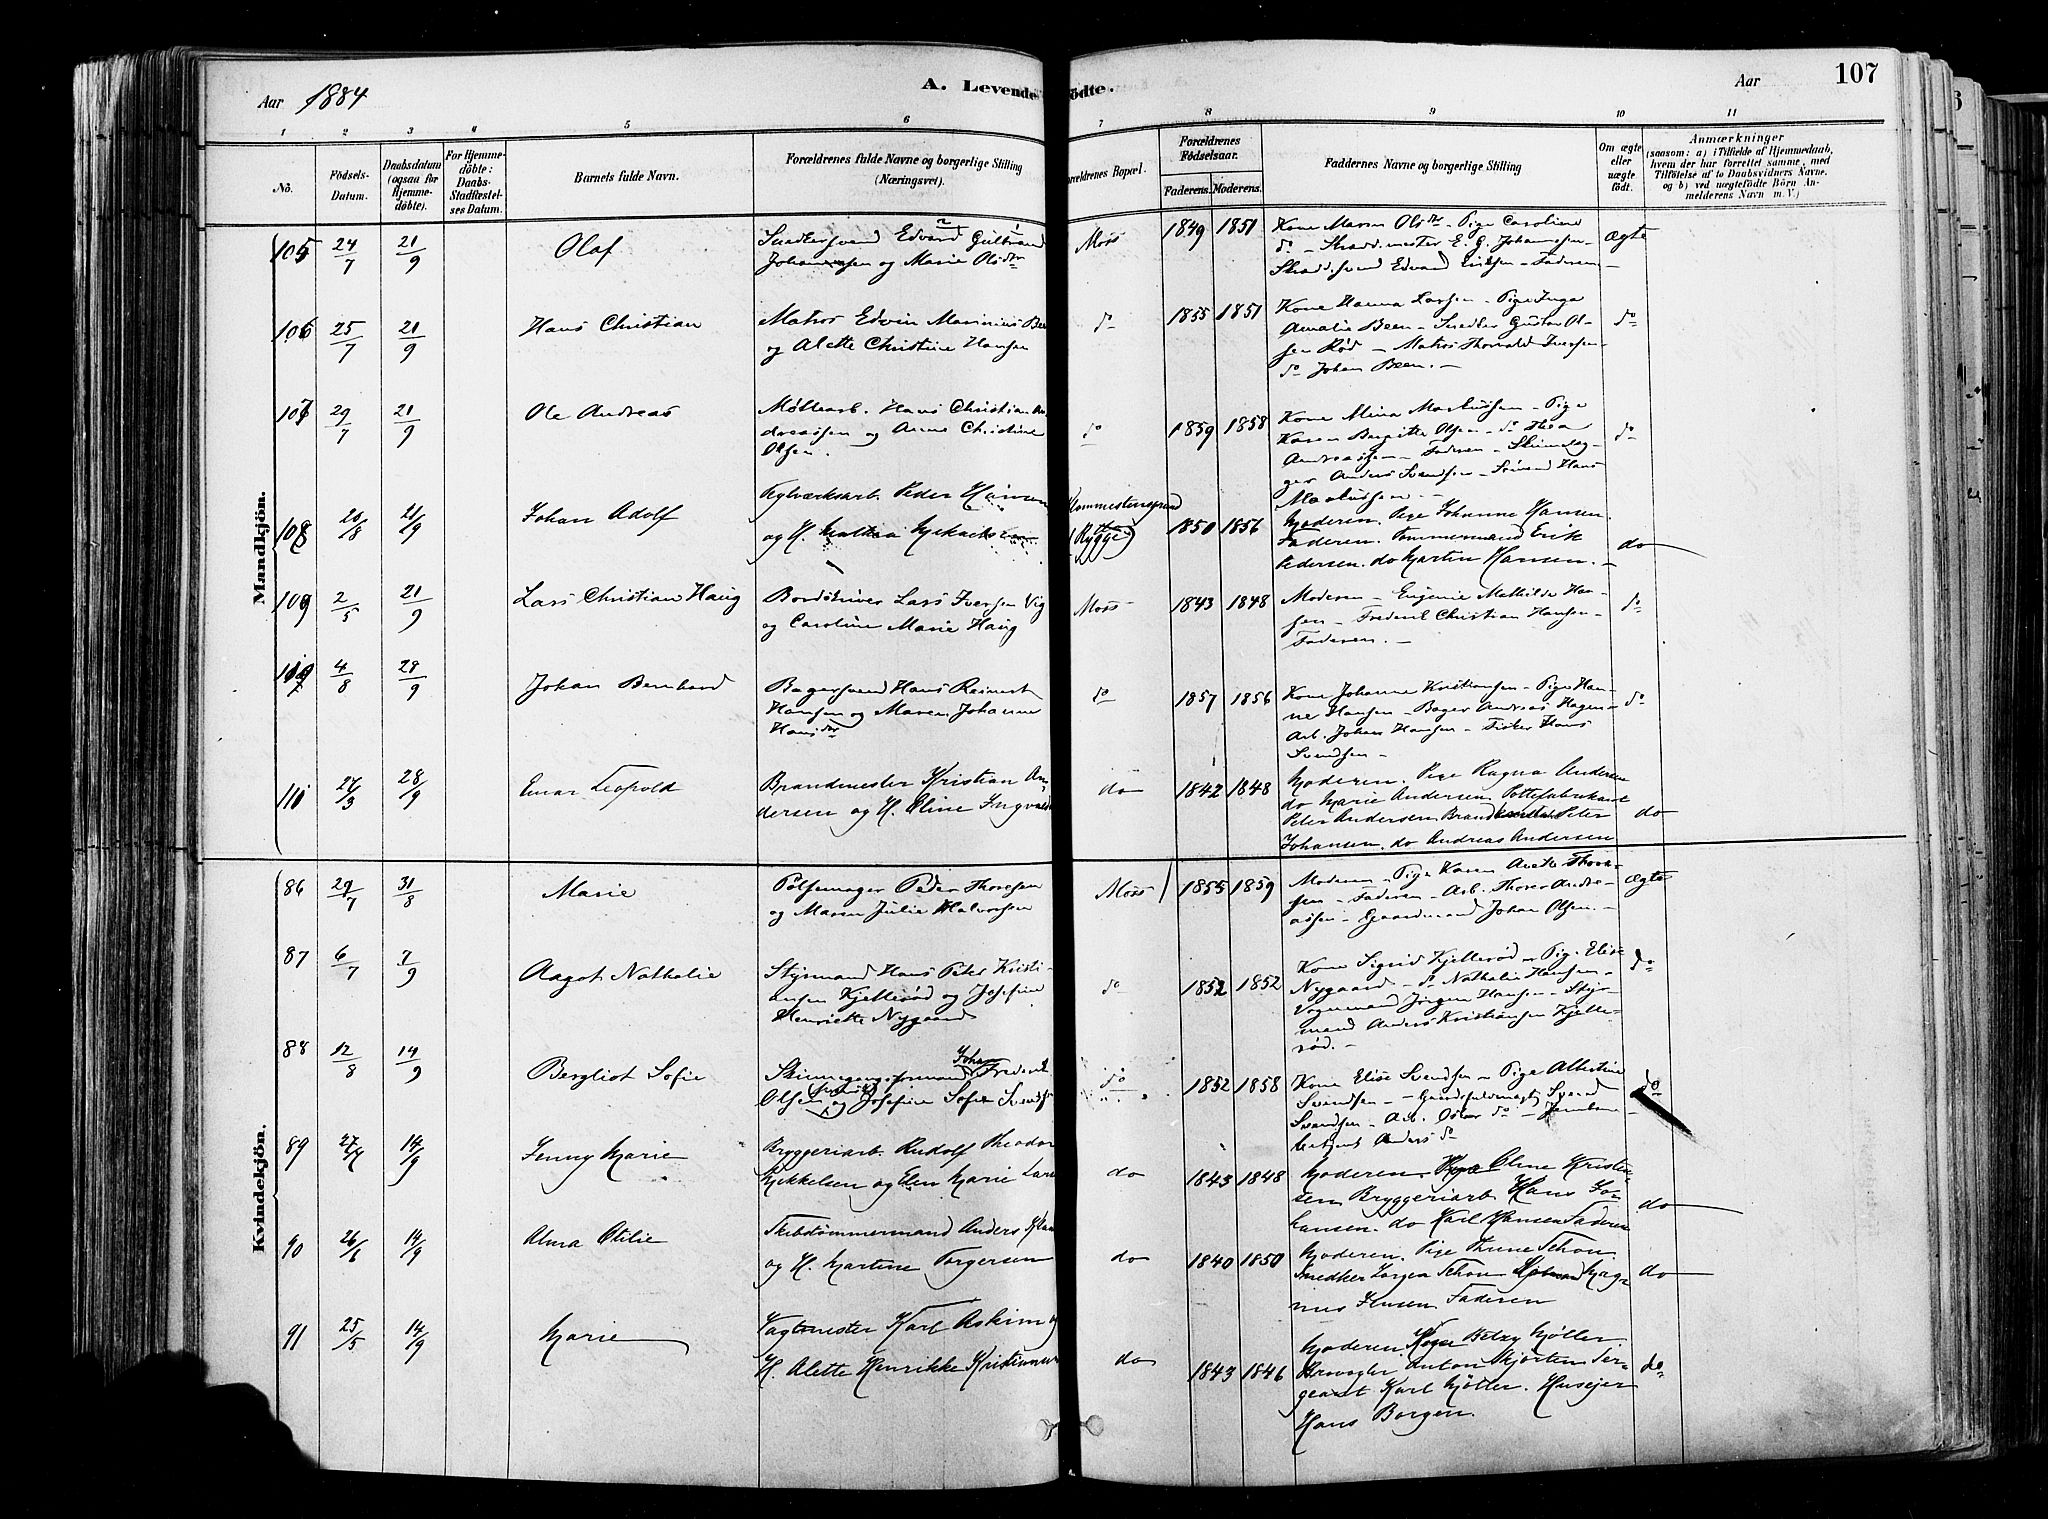 Aar 1884
A. Levende
ødte.
Aar
107
1 2 3 4 5 6 7 8 9 10 11
No.
Fødsels-Datum.
Daabsdatum (ogsaa for Hjemmedøbte).
For Hjemmedøbte: Daabs-Stadfæstelses Datum.
Barnets fulde Navn.
Forældrenes fulde Navne og borgerlige Stilling (Næringsvei).
Forældrenes Bopæl.
Forældrenes Fødselsaar.
Faderens. Moderens.
Faddernes Navne og borgerlige Stilling
Om ægte eller uægte født.
Anmærkninger
(saasom: a) i Tilfælde af Hjemmedaab,
hvem der har forrettet samme, med
Tilføielse af to Daabsvidners Navne,
og b) ved uægtefødte Børn An-
melderens Navn m. V.)
Mandkjön.
105 24/7 21/9 Olaf
Snedkersvend Edvard Gulbrand
Johannessen og Marie Olsdtr
Moss 1849 1851
Kone Maren Olsdtr – Pige Caroline
do – Skrædmester E. G. Johannessen
Skrædsvend Edvard Eriksen – Faderen –
Ægte
106 25/7 21/9 Hans Christian
Matros Edvin Marinius Been
og Alette Christine Hansen
do 1855 1851
Kone Hanna Larsen – Pige Inga
Amalie Been – Snedker Gustav Ol-
sen Rød – Matros Thorvald Iversen
do Johan Been. –
do
107 29/7 21/9 Ole Andreas
Møllearb. Hans Christian An-
dreassen og Anne Christine
Olsen.
do 1859 1858
Kone Mina Markussen – Pige
Karen Birgitte Olsen – do Thea
Andreassen – Faderen –
Anders Svendsen – Hans
Markussen. –
do
108 20/8 21/9 Johan Adolf
Teglværksarb. Peder Hansen
og H.
(Rygge) 1850 1856
Moderen. Pige Johanne Hansen.
Faderen. Tømmermand Erik
Pedersen. do Martin Hansen. –
do
109 2/5 21/9 Lars Christian Haug
Bordskriver Lars Iversen Vig
og Caroline Marie Haug
Moss 1843 1848
Moderen – Eugenie Mathilde Han-
sen – Frederik Christian Hansen
Faderen. –
do
110 4/8 28/9 Johan Bernhard
Bagersvend Hans Rasmest
Hansen og Maren Johanne
Hansdtr
do 1857 1856
Kone Johanne Kristiansen – Pige Han-
ne Hansen – Bager Andreas Hagen –
Arb. Johan Hansen – Fisker Hans
Svendsen –
do
111 27/3 28/9 Einar Leopold
Brandmester Kristian An-
dersen og H. Oline Ingvalds
do 1842 1848
Moderen. Pige Ragna Andersen
do Marie Andersen. Pottefabrikant
Peter Andersen Brandkonstabel Peter
Johansen. do Andreas Andersen
do
Kvindekjön.
86 29/7 31/8 Marie
Pølsemager Peder Thoresen
og Maren Julie Halvorsen
Moss 1855 1859
Moderen – Pige Karen Anette Thore-
sen – Faderen – Arb. Thorer Andre-
assen – Gaardmand Johan Olsen. –
Ægte
87 6/7 7/9 Aagot Nathalie
Styrmand Hans Peter Kristi-
ansen Kjellerød og Josefine
Henriette Nygaard
do 1852 1852
Kone Sigrid Kjellerød – Pige Elise
Nygaard – do Nathalie Hansen –
Vognmand Jørgen Hansen – Styr-
mand Anders Kristiansen Kjelle-
rød. –
do
88 12/8 14/9 Bergliot Sofie
Johan Frederik
Olsen og Josefine Sofie Svendsen
do 1852 1858
Kone Elise Svendsen – Pige Albertine
Svendsen – Svend
Svendsen – Arb. Oskar do – Jernbane-
betjent Anders do
do
89 27/7 14/9 Jenny Marie
Bryggeriarb. Rudolf Theodor
Mikkelsen og Elen Marie Lars
do 1843 1848
Moderen. Oline Kristen-
sen Bryggeriarb. Hans Jo-
hansen. do Karl Hansen Faderen
do
90 26/6 14/9 Alma Otilie
Skibstømmermand Anders
og H. Martine Torgersen
do 1840 1850
Moderen. Pige Thrine Schou
Snedker Jørgen Schou Mag-
nus Jensen Faderen
do
91 25/5 14/9 Marie
Vagtmester Karl Askim og
H. Alette Henrikke Kristiansen
do 1843 1846
Moderen Betzy Møller
Anton Hjorten Ser-
geant Karl Møller. Huseier
Hans Borgen.
do